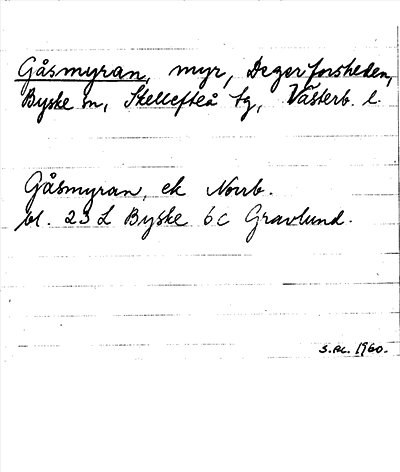 Gåsmyran, myr, Degerforsheden,
Byske sn, Skellefteå tg, Västerb. l.
Gåsmyran, ek Norrb.
bl. 23 L Byske 6c Gravlund.
1960.